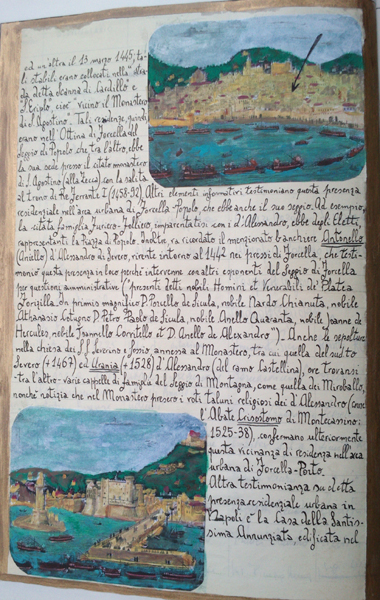 ed un'altra il 13 marzo 1445, ta-
li stabili erano collocati nella "stra-
da detta Scanna di Cardillo e
l'Ercole, cioè vicino il Monastero
di S. Agostino". Tali residenze, quindi,
erano nell'Ottina di Forcella del
Seggio di Popolo, che tra l'altro, ebbe
la sua sede presso il citato monastero
di S. Agostino (alla Zecca), con la salita
al trono di Re Ferrante I (1458-92). Altri elementi informativi testimoniano questa presenza
residenziale nell'area urbana di Forcella-Popolo, che ebbe anche il suo seggio. Ad esempio,
la citata famiglia Folliero, imparentatasi con i d'Alessandro, ebbe degli Eletti,
rappresentanti la Piazza di Popolo. Inoltre, va ricordato il menzionato banchiere Antonello
(Aniello) d'Alessandro di Severo, vivente intorno al 1442 nei pressi di Forcella, che testi-
moniò questa presenza in loco perché intervenne con altri esponenti del Seggio di Forcella
per questioni amministrative ("presenti detti nobili Homini et Venerabili de Platea
Forzilla: da primis magnifico D. Porcello de Sicula, nobile Nardo Chianuta, nobile
Athanasio Cotugno D. Petro Paolo de Sicula, nobile Anello Quaranta, nobile Joanne de
Hercules, nobile Joannello et D. Anello de Alexandro"). Anche le sepolture
nella chiesa dei S.S. Severino e Sossio, annessa al Monastero, tra cui quella del sud.to
Severo (†1467) ed Urania (†1528) d'Alessandro (del ramo Castellina), ove trovansi
tra l'altro varie cappelle di famiglia del Seggio di Montagna, come quella dei Miroballo,
nonché notizia che nel Monastero presero i voti taluni religiosi dei d'Alessandro (come
l'Abate Crisostomo di Montecassino:
1525-38), confermano ulteriormente
questa vicinanza di residenza nell'area
urbana di Forcella-Porto.
Altra testimonianza su detta
presenza residenziale urbana in
Napoli è la Casa della Santis-
sima Annunziata, edificata nel